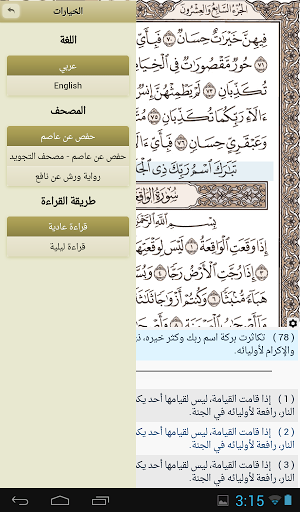 الخيارات
اللغة
عربي
English
المصحف
حفص عن عاصم
حفص عن عاصم - مصحف التجويد
رواية ورش عن نافع
طريقة القراءة
قراءة عادية
قراءة ليلية
الجزء السابع والعشرون
فِيهِنَّ خَيْرَٰتٌ حِسَانٌ ٧٠ فَبِأَيِّ
تُكَذِّبَانِ ٧١ حُورٌ مَّقْصُورَٰتٌ فِي ٱلْخِيَامِ
تُكَذِّبَانِ ٧٣ لَمْ يَطْمِثْهُنَّ إِنسٌ
ءَالَآءِ رَبِّكُمَا تُكَذِّبَانِ ٧٥
وَعَبْقَرِيٍّ حِسَانٍ ٧٦ فَبِأَيِّ ءَالَآءِ
تَبَٰرَكَ ٱسْمُ رَبِّكَ ذِي ٱلْجَلَٰلِ
سُورَةُ الوَاقِعَة
بِسْمِ ٱللَّهِ ٱلرَّحْمَٰنِ
إِذَا وَقَعَتِ ٱلْوَاقِعَةُ ١ لَيْسَ لِوَقْعَتِهَا
إِذَا رُجَّتِ ٱلْأَرْضُ رَجًّا ٤ وَبُسَّتِ
هَبَآءً مُّنۢبَثًّا ٦ وَكُنتُمْ أَزْوَٰجًا ثَلَٰثَةً
( 78 ) تكاثرت بركة اسم ربك وكثر خيره،
والإكرام لأوليائه.
( 1 ) إذا قامت القيامة، ليس لقيامها أحد
النار، رافعة لأوليائه في الجنة.
( 2 ) إذا قامت القيامة، ليس لقيامها أحد
النار، رافعة لأوليائه في الجنة.
( 3 ) إذا قامت القيامة، ليس لقيامها أحد
النار، رافعة لأوليائه في الجنة.
3:15